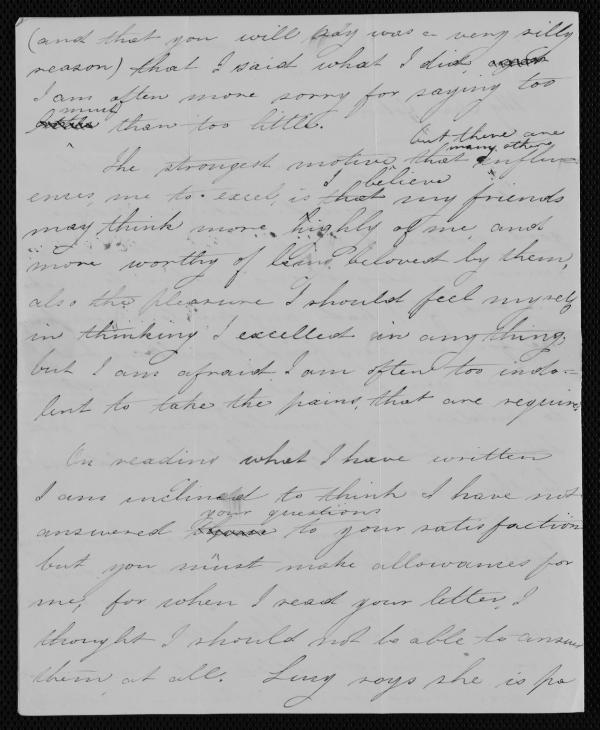 (and that you will say was a very silly
reason) that I said what I did,
I am often more sorry for saying too
much
than too little.
but there are
many others
The strongest motive that influ-
I believe
ences, me to excel, is that my friends
may think more highly of me, and
more worthy of being beloved by them,
also the pleasure I should feel myself
in thinking I excelled in anything;
but I am afraid I am often too indo=
lent to take the pains, that are require
On reading what I have written
I am inclined to think I have not
your questions
answered to your satisfaction
but you must make allowances for
me, for when I read your letter, I
thought I should not be able to answer
them at all. Lucy says she is po